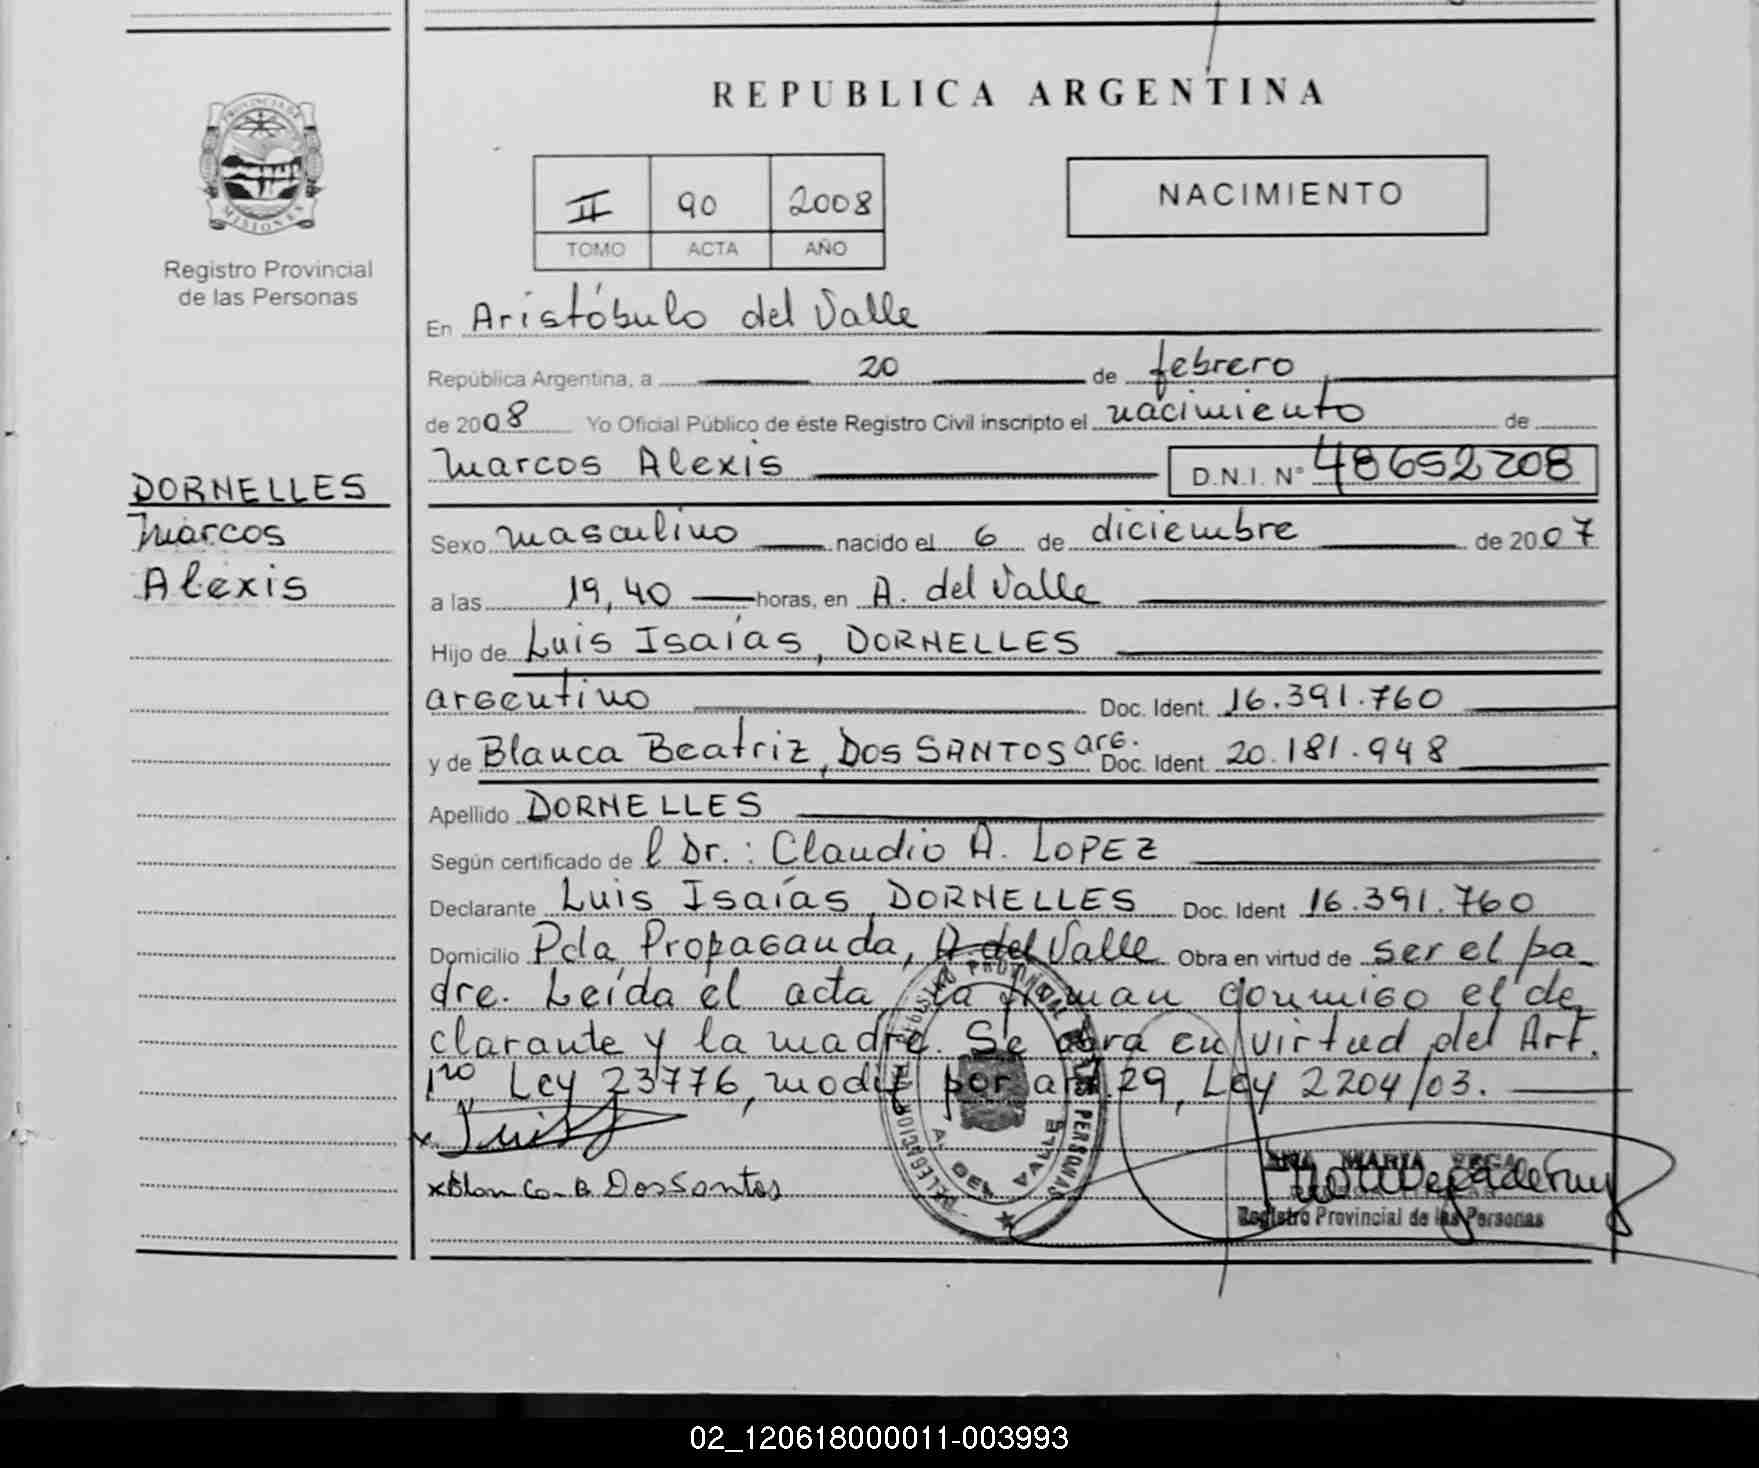 REPUBLICA ARGENTINA
PROVINCIA DE MISIONES
Registro Provincial
de las Personas
II 90 2008
TOMO ACTA AÑO
NACIMIENTO
En Aristóbulo del Valle
República Argentina, a 20 de febrero
de 2008 Yo Oficial Público de éste Registro Civil inscripto el nacimiento de
Marcos Alexis D.N.I. N° 48652208
DORNELLES
Marcos
Alexis
Sexo masculino nacido el 6 de diciembre de 2007
a las 19,40 horas, en A. del Valle
Hijo de Luis Isaías, DORNELLES
argentino Doc. Ident. 16.391.760
y de Blanca Beatriz, DOS SANTOS arg. Doc. Ident. 20.181.948
Apellido DORNELLES
Según certificado de l Dr.: Claudio A. LOPEZ
Declarante Luis Isaías, DORNELLES Doc. Ident 16.391.760
Domicilio Pda Propaganda, A. del Valle Obra en virtud de ser el pa
dre. Leída el acta la firman conmigo el de
clarante y la madre. Se obra en virtud del Art.
1ro, Ley 23776, modif por art. 29, Ley 2204/03.
x Luis
x Blanca B DosSantos
REGISTRO PROVINCIAL DE LAS PERSONAS
DELEGACION
A. DEL VALLE
ANA MARIA VEGA
Registro Provincial de las Personas
02_120618000011-003993